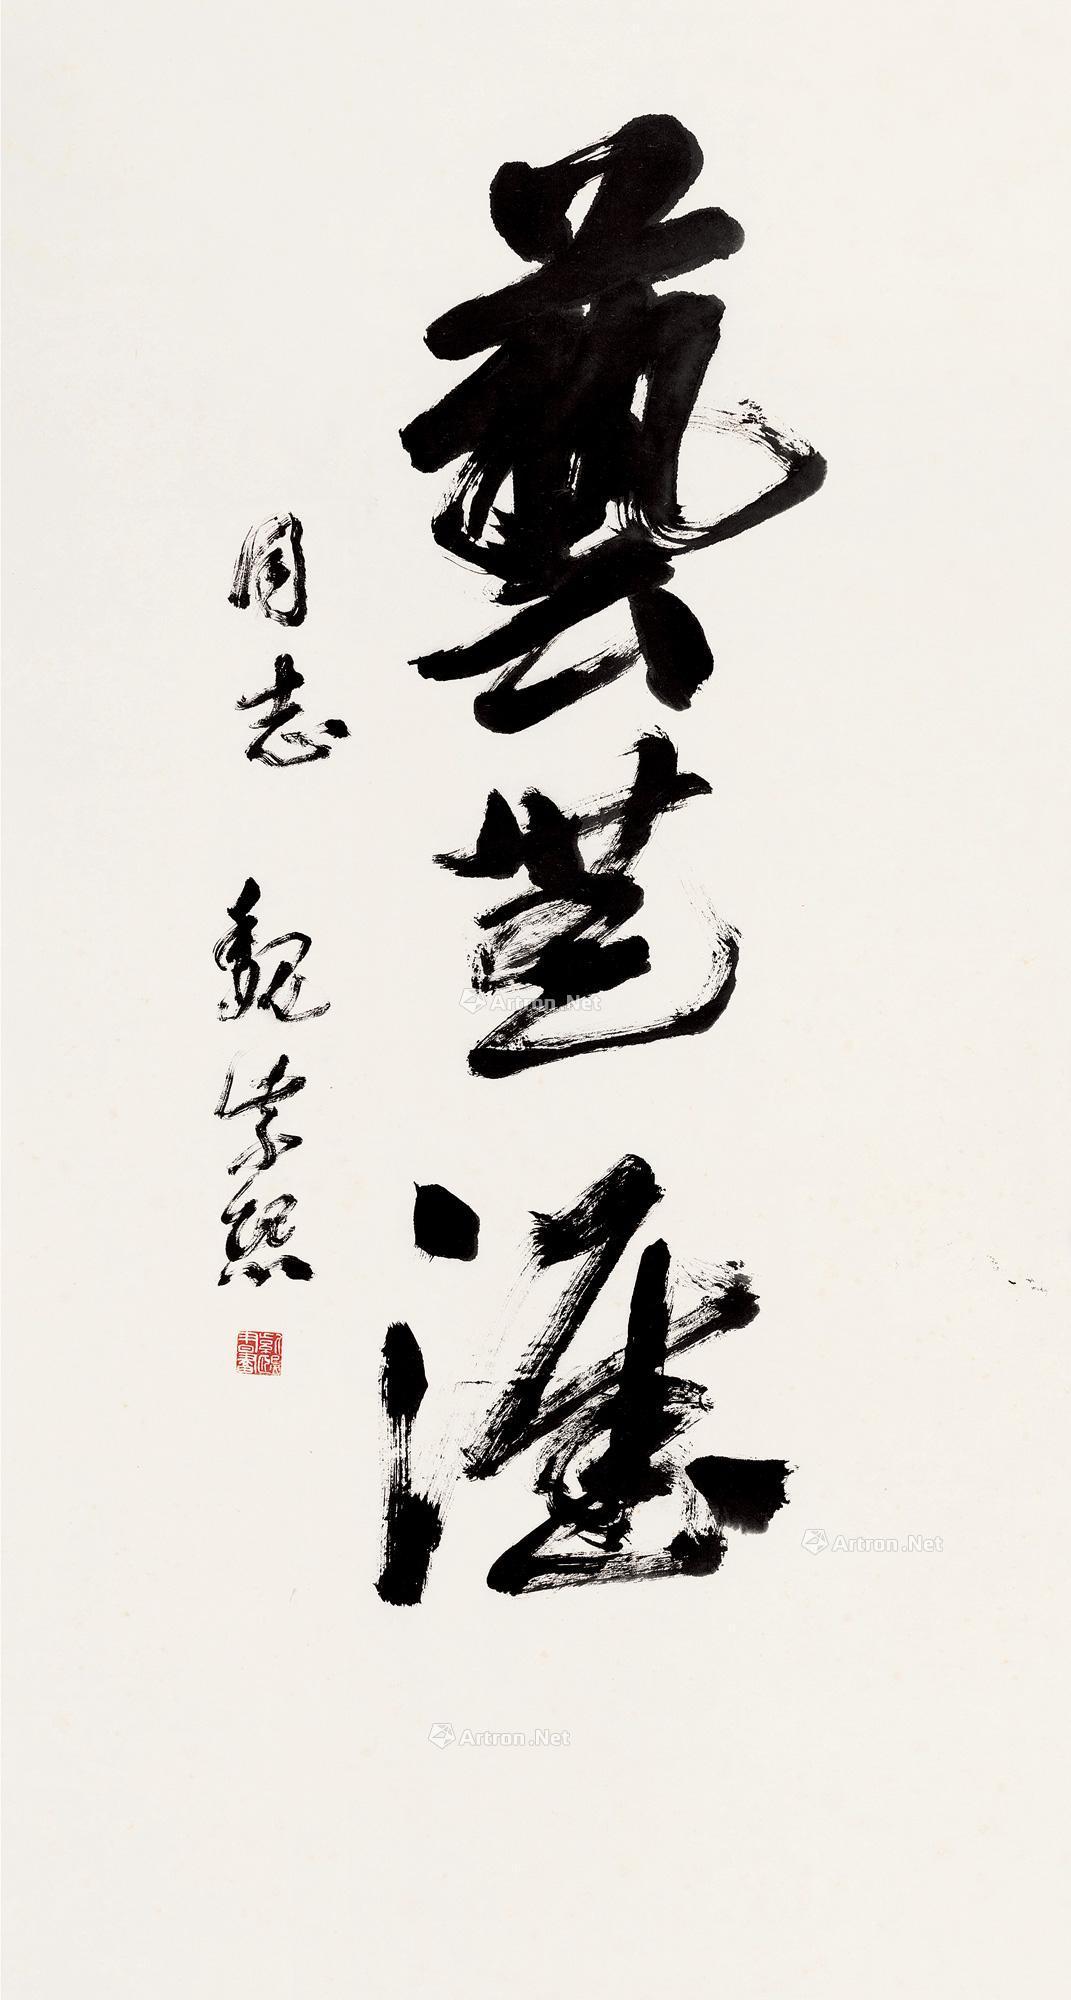 藝無涯
同志 魏紫熙
Artron.Net
Artron.Net
Artron.Net